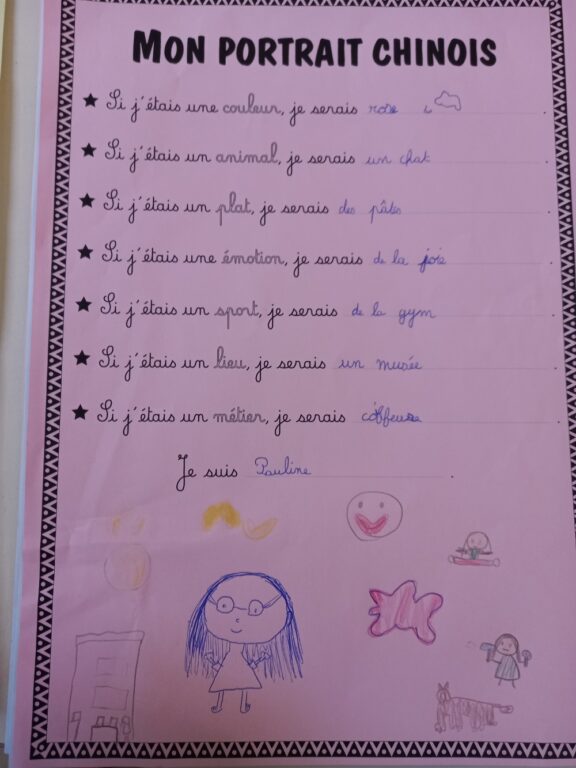 MON PORTRAIT CHINOIS
★ Si j'étais une couleur, je serais rose .
★ Si j'étais un animal, je serais un chat .
★ Si j'étais un plat, je serais des pâtes .
★ Si j'étais une émotion, je serais de la joie .
★ Si j'étais un sport, je serais de la gym .
★ Si j'étais un lieu, je serais un musée .
★ Si j'étais un métier, je serais coiffeuse .
Je suis Pauline .